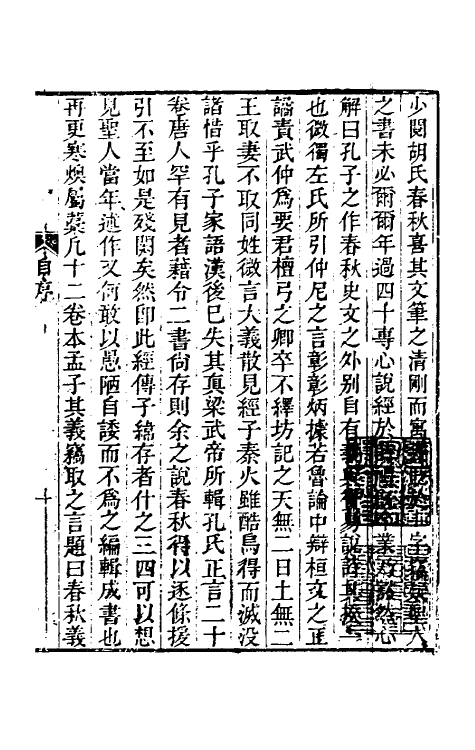 少閱胡氏春秋喜其文筆之清剛而寓
之書未必爾爾年過四十專心說經於業然心
解曰孔子之作春秋史文之外別自有
也微獨左氏所引仲尼之言彰彰炳據若魯論中辯桓文之正
譎責武仲爲要君檀弓之卿卒不繹坊記之天無二日土無二
王取妻不取同姓微言大義散見經子秦火雖酷烏得而滅没
諸惜乎孔子家語漢後已失其眞梁武帝所輯孔氏正言二十
卷唐人罕有見者藉令二書尙存則余之說春秋得以逐條援
引不至如是殘闕矣然卽此經傳子緯存者什之三四可以想
見聖人當年述作又何敢以愚陋自諉而不爲之編輯成書也
再更寒燠屬藁凡十二卷本孟子其義竊取之言題曰春秋義
自序